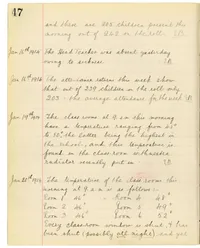 47
and there are 205 children present this
morning out of 260 on the roll.
Jan 13th 1926 The Head Teacher was absent yesterday
owing to sickness.
Jan 16th 1926 The attendance returns this week show
that out of 259 children on the roll only
203 - the average attendance
Jan 19th 1926 The class rooms at 9 a.m. this morning
have a temperature ranging from 45°
to 52° the latter being the highest in
the school, and this temperature is
found in the class room with extra
radiator recently put in.
Jan 20th 1926 The temperature of the class rooms this
morning at 9 a.m. is as follows:-
Room 1 46° Room 4 48°
Room 2 46° Room 5 49°
Room 3 46° Room 6 52°
Every classroom window is shut, & has
been shut (possibly all night) and yet